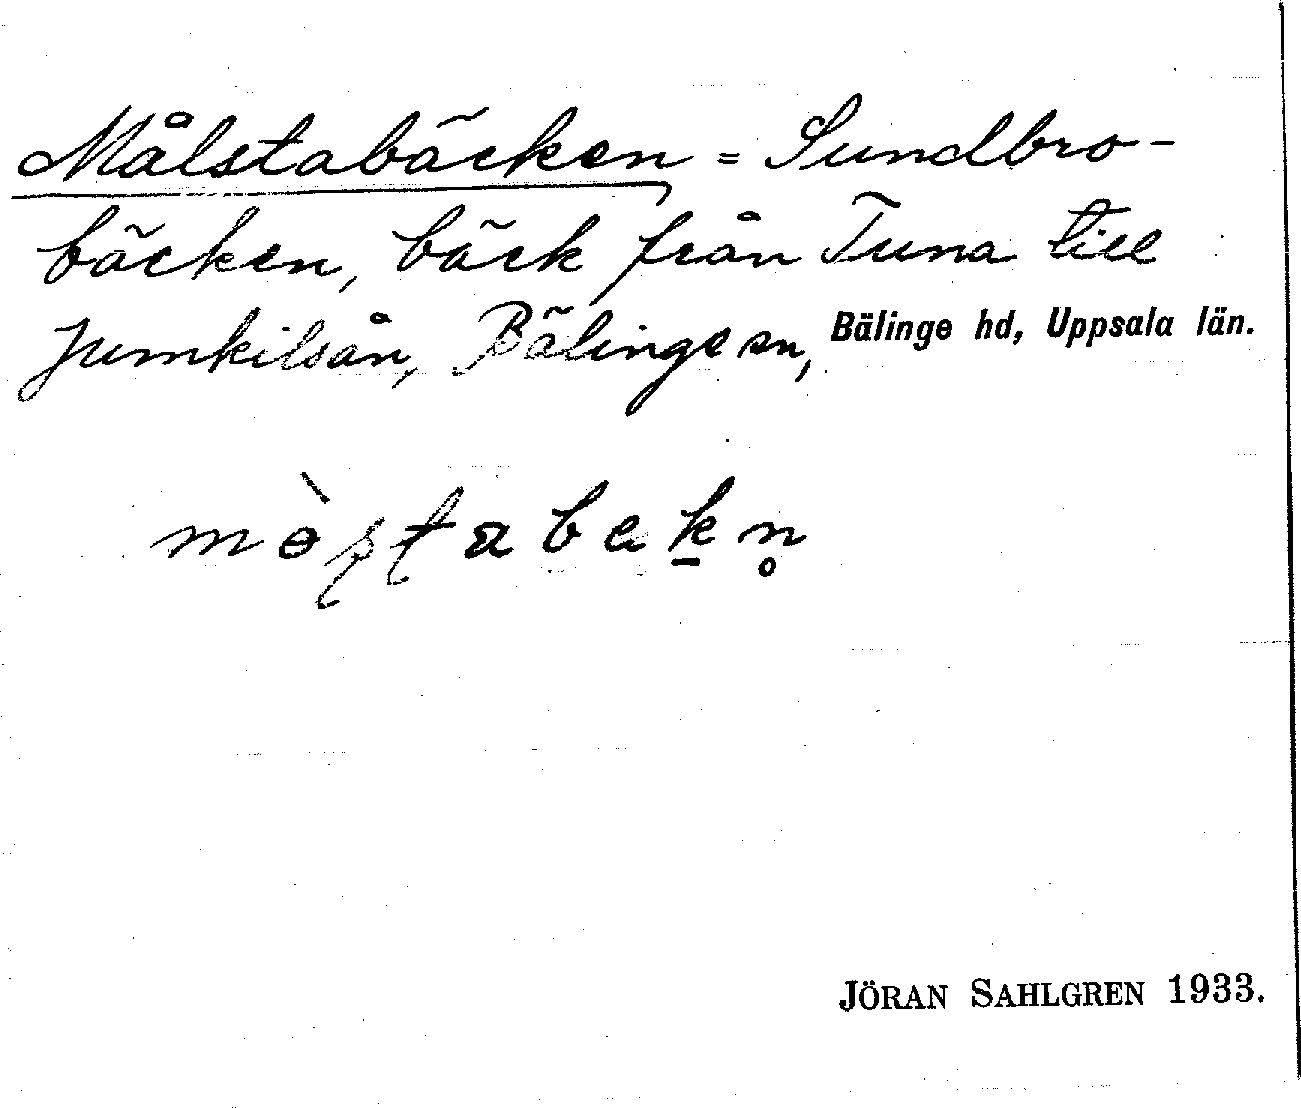 Målstabäcken = Sundbro-
bäcken, bäck från Tuna till
Jumkilsån, Bälinge sn, Bälinge hd, Uppsala län.
mɵ̀ʂʈabekn̥
JÖRAN SAHLGREN 1933.